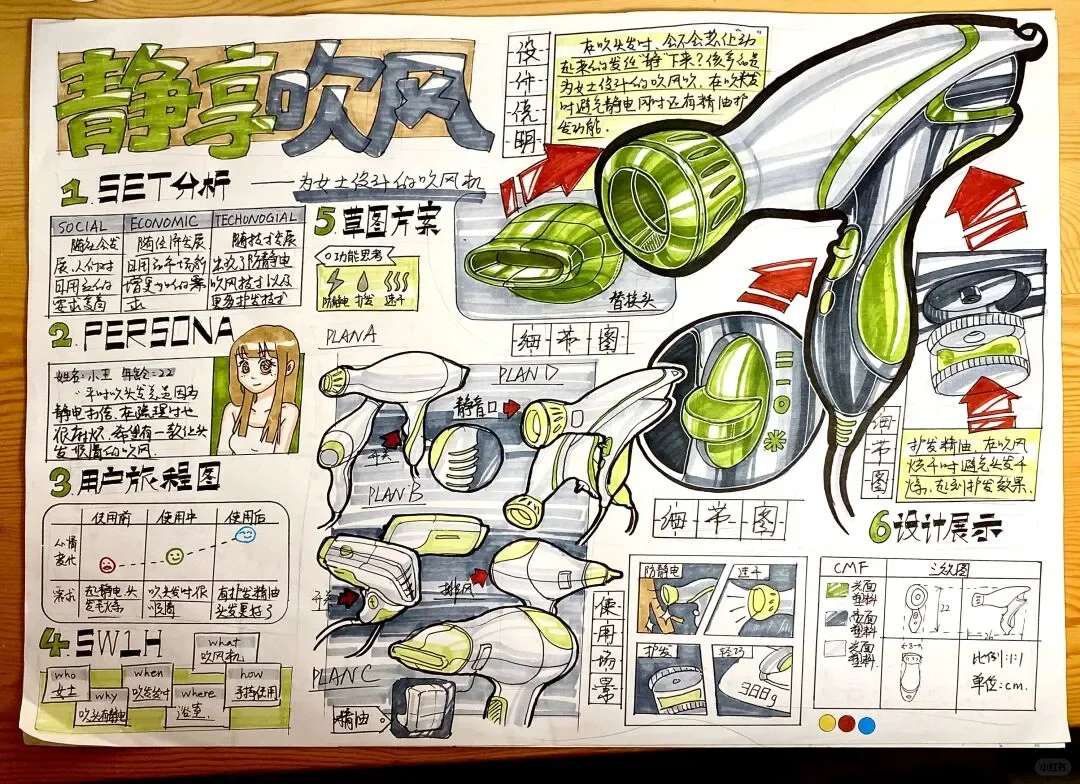 静享吹风
——为女士设计的吹风机
设计说明
在吹头发时,会不会若让"动"
起来的发丝"静"下来?该产品是
为女士设计的吹风机,在吹头发
时避免静电同时还有精油护
发功能.
1. SET分析
SOCIAL ECONOMIC TECHONOGIAL
随社会发
展,人们对
日用品的
要求变高
随经济发展
日用品市场新
增更多的需
求
随技术发展
出现了防静电
吹风技术以及
更多护发技术
2. PERSONA
姓名:小王 年龄:22
静电
发
3. 用户旅程图
使用前 使用中 使用后
心情变化
需求
起静电,头
吹头发时很
有护发精油
4. 5W1H
what
吹风机
who
女士
when
吹发时
how
手持使用
why
吹头有静电
where
浴室.
5 草图方案
功能思考
防静电 护发 速干
PLAN A
PLAN B
PLAN C
PLAN D
开关
静音口
开关
排风
精油
替换头
细节图
细节图
细节图
护发精油,在吹风
烘干时避免头发干
燥,起到护发效果.
使用场景
防静电 速干
护发 轻巧
388g
6 设计展示
CMF 三视图
光面塑料
亮面塑料
光面塑料
22
比例:1:1
单位:cm.
小红书